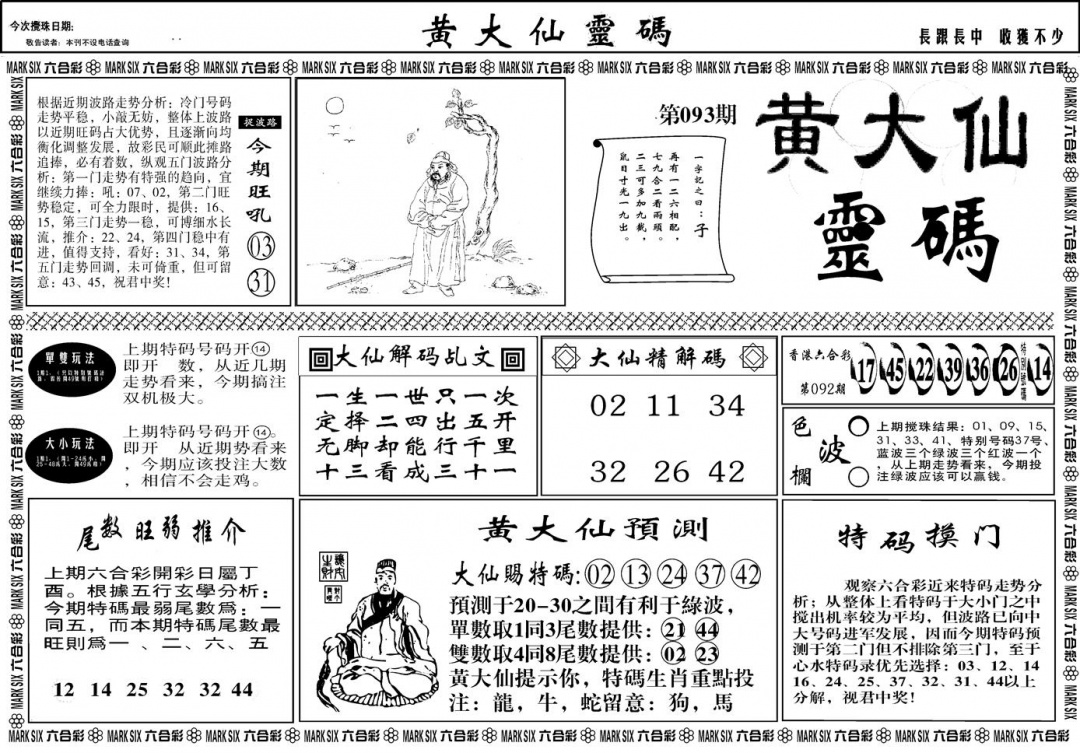 今次攪珠日期:
敬告读者：本刊不设电话查询
黄大仙靈碼
長跟長中 收獲不少
MARK SIX 六合彩 MARK SIX 六合彩 MARK SIX 六合彩 MARK SIX 六合彩 MARK SIX 六合彩 MARK SIX 六合彩 MARK SIX 六合彩 MARK SIX 六合彩 MARK SIX 六合彩 MARK SIX 六合彩 MARK SIX 六合彩
根据近期波路走势分析：冷门号码
走势平稳，小敲无妨，整体上波路
以近期旺码占大优势，且逐渐向均
衡化调整发展，故彩民可顺此摊路
追捧，必有着数，纵观五门波路分
析：第一门走势有特强的趋向，宜
继续力捧：吼：07、02，第二门旺
势稳定，可全力限时，提供：16、
15，第三门走势一稳，可博细水长
流，推介：22、24，第四门稳中有
进，值得支持，看好：31、34，第
五门走势回调，未可倚重，但可留
意：43、45，祝君中奖！
捉波路
今期旺吼
03
31
第093期
一字記之曰：子
再有一二六相配，
七九合二看兩頭。
二三可多加九截，
鼠目寸光一九出。
黄大仙
靈碼
單雙玩法
上期特码号码开⑭
即开 数，从近几期
走势看来，今期搞注
双机极大。
大小玩法
上期特码号码开⑭。
即开 从近期势看来
，今期应该投注大数
，相信不会走鸡。
大仙解码乩文
一生一世只一次
定择二四出五开
无脚却能行千里
十三看成三十一
大仙精解碼
02 11 34
32 26 42
香港六合彩
第092期
17 45 22 39 36 26 特别號碼 14
色波欄
上期搅珠结果：01、09、15、
31、33、41，特别号码37号、
蓝波三个绿波三个红波一个
，从上期走势看来，今期投
注绿波应该可以赢钱。
尾数旺弱推介
上期六合彩開彩日屬丁
酉。根據五行玄學分析：
今期特碼最弱尾數爲：一
同五，而本期特碼尾數最
旺則爲一 、二、六、五
12 14 25 32 32 44
黄大仙預測
大仙賜特碼:02 13 24 37 42
預測于20-30之間有利于綠波，
單數取1同3尾數提供：21 44
雙數取4同8尾數提供：02 23
黄大仙提示你，特碼生肖重點投
注：龍，牛，蛇留意：狗，馬
特码摸门
观察六合彩近来特码走势分
析；从整体上看特码于大小门之中
搅出机率较为平均，但波路已向中
大号码进军发展，因而今期特码预
测于第二门但不排除第三门，至于
心水特码录优先选择：03、12、14
16、24、25、37、32、31、44以上
分解，祝君中奖！
MARK SIX 六合彩 MARK SIX 六合彩 MARK SIX 六合彩 MARK SIX 六合彩 MARK SIX 六合彩 MARK SIX 六合彩 MARK SIX 六合彩 MARK SIX 六合彩 MARK SIX 六合彩 MARK SIX 六合彩 MARK SIX 六合彩